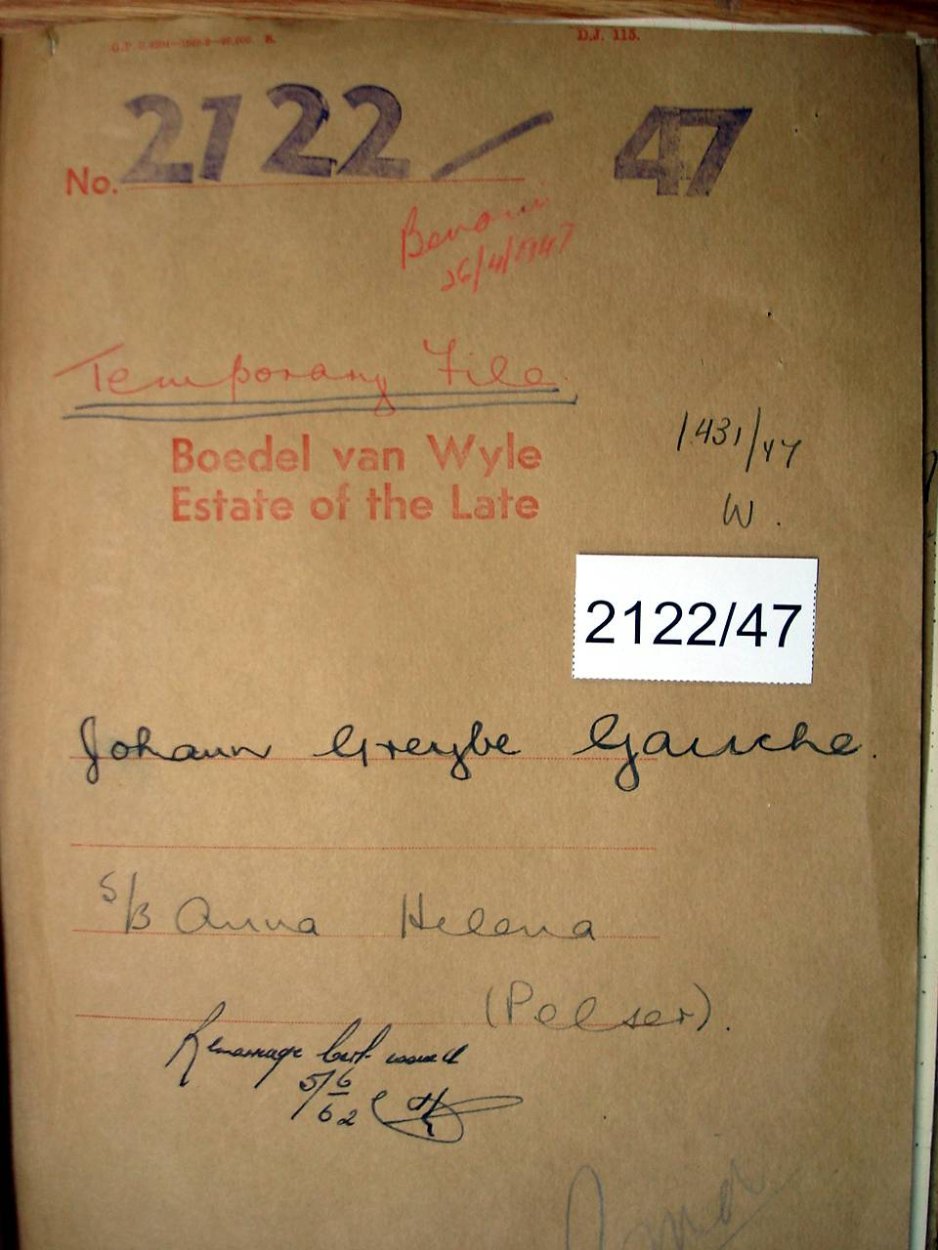 D.J. 115.
No. 2122/47
Benoni
26/4/1947
Temporary File
Boedel van Wyle
Estate of the Late
1431/47
W.
2122/47
Johann Greybe Gausche.
S/B Anna Helena
(Pelser).
Remarriage Cert. issued
5/6/62